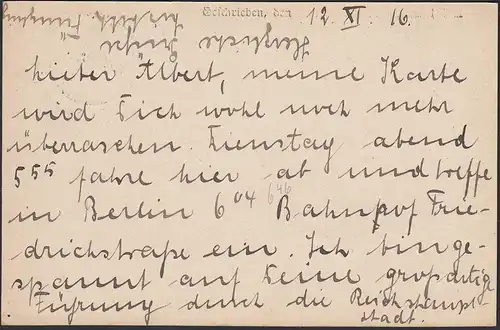 Geschrieben, den 12. XI. 16.
Lieber Albert, meine Karte
wird Dich wohl noch mehr
überraschen. Dienstag abend
5⁵⁵ fahre hier ab und treffe
in Berlin 6⁰⁴ 6⁴⁶ Bahnhof Frie-
drichstraße ein. Ich bin ge-
spannt auf Deine großartige
Führung durch die Reichshaupt-
stadt.
Herzliche Grüße